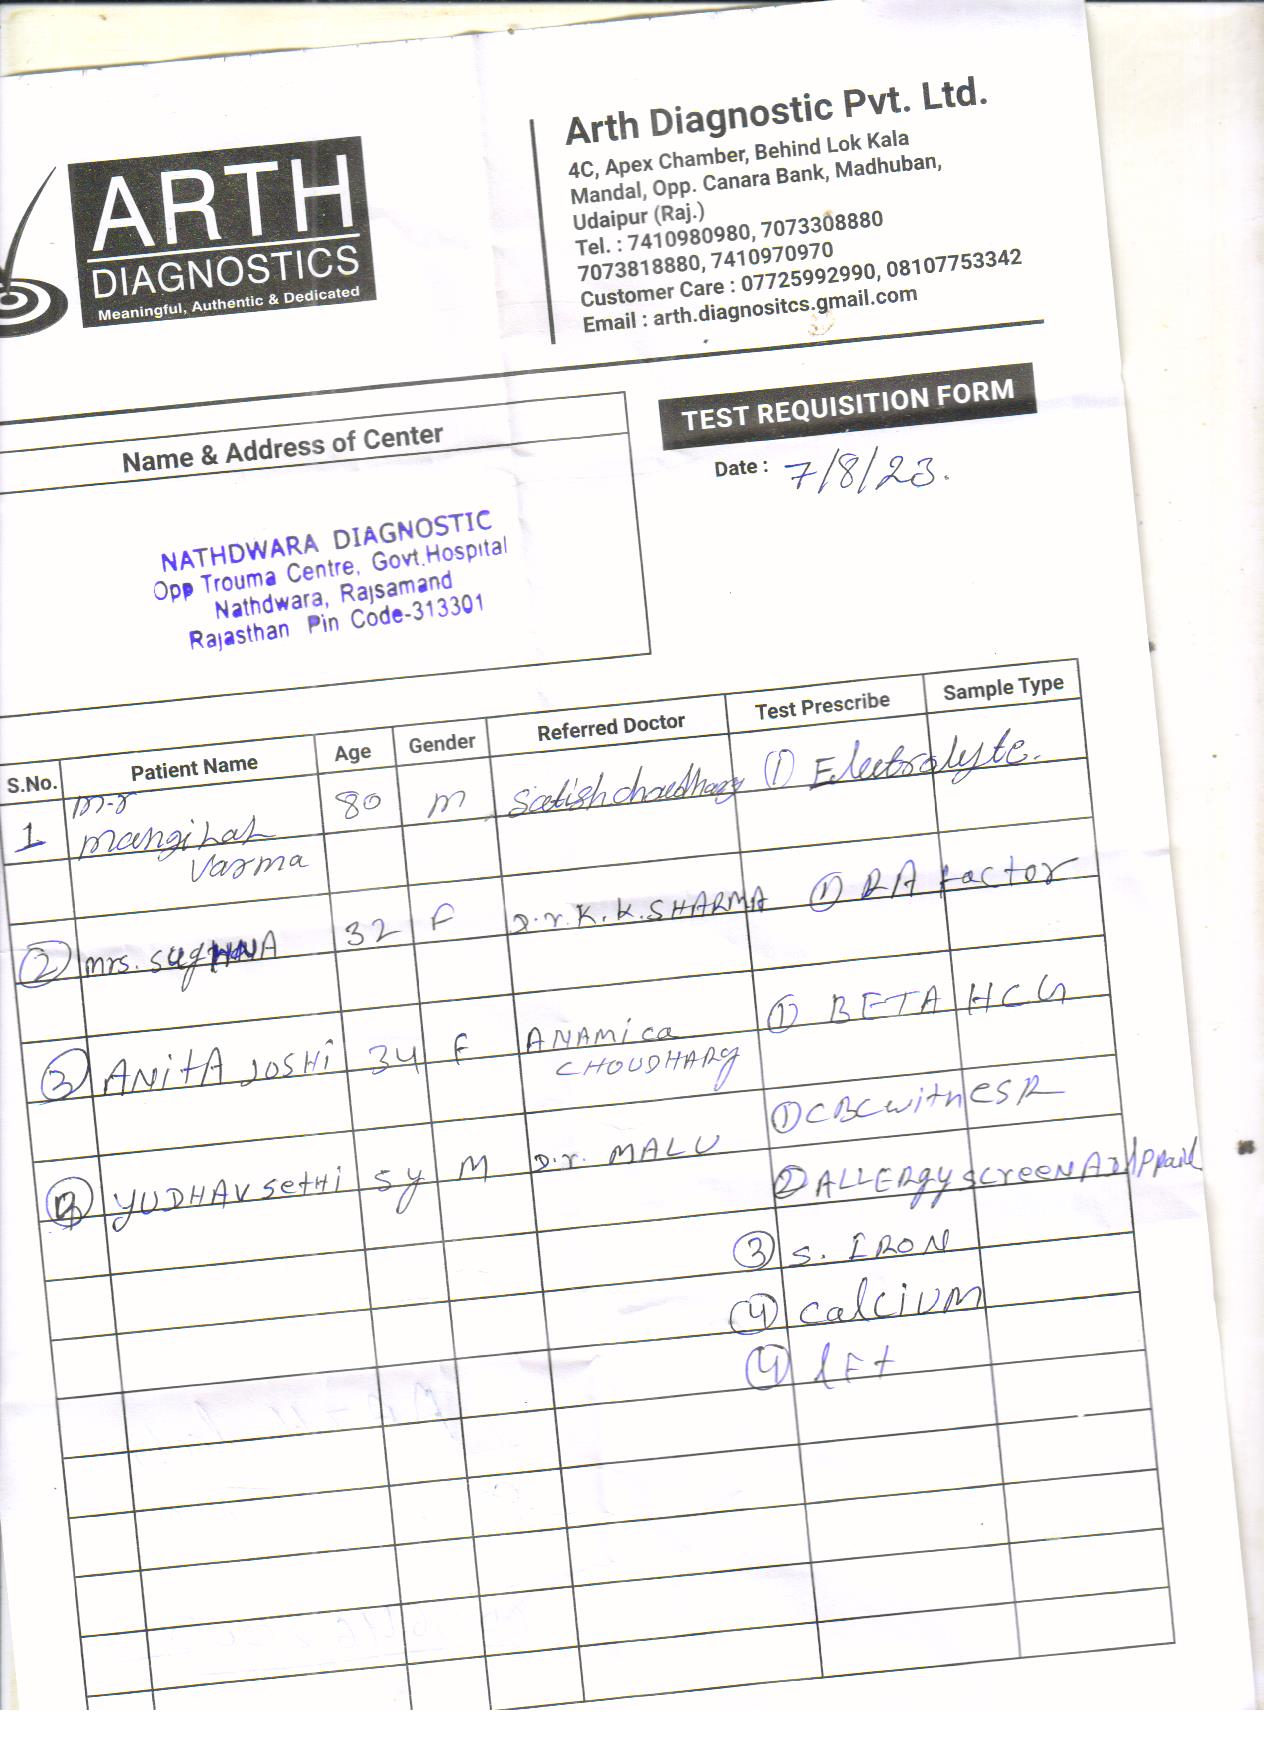 ARTH
DIAGNOSTICS
Meaningful, Authentic & Dedicated
Arth Diagnostic Pvt. Ltd.
4C, Apex Chamber, Behind Lok Kala
Mandal, Opp. Canara Bank, Madhuban,
Udaipur (Raj.)
Tel. : 7410980980, 7073308880
7073818880, 7410970970
Customer Care : 07725992990, 08107753342
Email : arth.diagnositcs.gmail.com
TEST REQUISITION FORM
Date : 7/8/23.
Name & Address of Center
NATHDWARA DIAGNOSTIC
Opp Trouma Centre, Govt.Hospital
Nathdwara, Rajsamand
Rajasthan Pin Code-313301
S.No. Patient Name Age Gender Referred Doctor Test Prescribe Sample Type
1 m-r 80 m Satish choudhary (1) Electrolyte.
mangilal
varma
(2) mrs. sugHNA 32 F D.r. K. K. SHARMA (1) RA factor
(3) ANitA JOSHi 34 F ANAMica (1) BETA HCG
CHOUDHARY
(1) CBC with ESR
YUDHAV SetHi 5y M D.r. MALU
(2) ALLERgy screen
(3) S. IRON
(4) calcium
(4) lFt